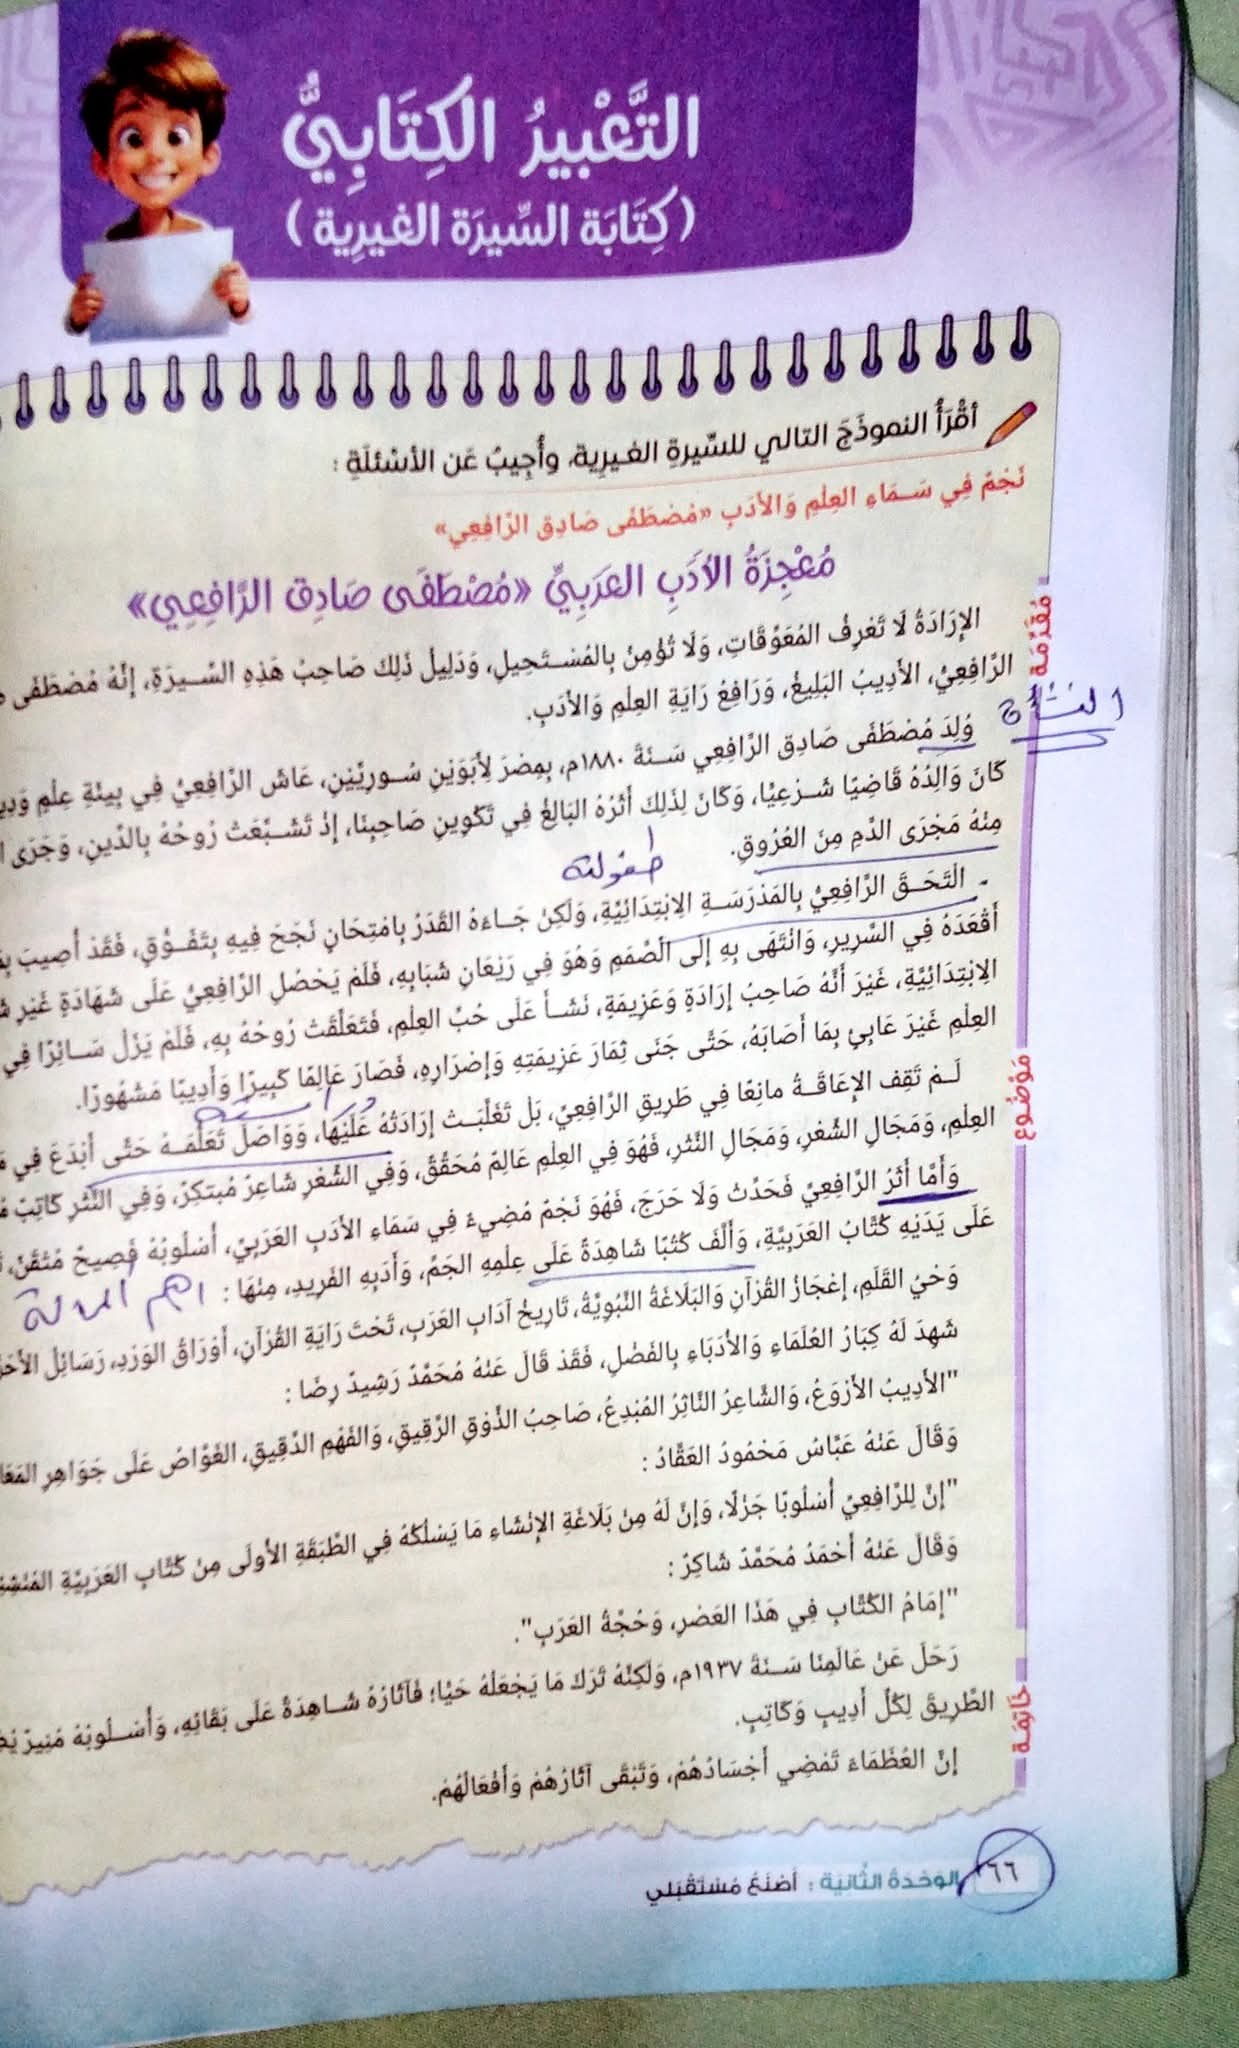 التَّعْبِيرُ الكِتَابِيُّ
(كِتَابَة السِّيرَة الغيرِية)
أقْرَأُ النموذَجَ التالي للسِّيرةِ الغيرِية، وأُجِيبُ عَن الأسْئلَةِ :
نَجْمٌ فِي سَمَاءِ العِلْمِ وَالأدَبِ «مُصْطَفَى صَادِق الرَّافِعِي»
مُعْجِزَةُ الأَدَبِ العَرَبِيِّ «مُصْطَفَى صَادِق الرَّافِعِي»
مُقَدِّمَة
الإِرَادَةُ لَا تَعْرِفُ المُعَوِّقَاتِ، وَلَا تُؤْمِنُ بِالمُسْتَحِيلِ، وَدَلِيلُ ذَلِكَ صَاحِبُ هَذِهِ السِّيرَةِ، إِنَّهُ مُصْطَفَى
الرَّافِعِيُّ، الأَدِيبُ البَلِيغُ، وَرَافِعُ رَايَةِ العِلْمِ وَالأَدَبِ.
وُلِدَ مُصْطَفَى صَادِق الرَّافِعِي سَنَةَ ١٨٨٠م، بِمِصْرَ لِأَبَوَيْنِ سُورِيَّيْنِ، عَاشَ الرَّافِعِيُّ فِي بِيئَةِ عِلْمٍ
كَانَ وَالِدُهُ قَاضِيًا شَرْعِيًّا، وَكَانَ لِذَلِكَ أَثَرُهُ البَالِغُ فِي تَكْوِينِ صَاحِبِنَا، إِذْ تَشَبَّعَتْ رُوحُهُ بِالدِّينِ، وَجَرَى
مِنْهُ مَجْرَى الدَّمِ مِنَ العُرُوقِ.
طفولته
موْضُوع
- الْتَحَقَ الرَّافِعِيُّ بِالمَدْرَسَةِ الِابْتِدَائِيَّةِ، وَلَكِنْ جَاءَهُ القَدَرُ بِامْتِحَانٍ نَجَحَ فِيهِ بِتَفَوُّقٍ، فَقَدْ أُصِيبَ
أَقْعَدَهُ فِي السَّرِيرِ، وَانْتَهَى بِهِ إِلَى الصَّمَمِ وَهُوَ فِي رَيْعَانِ شَبَابِهِ، فَلَمْ يَحْصُلِ الرَّافِعِيُّ عَلَى شَهَادَةٍ غَيْرِ
الِابْتِدَائِيَّةِ، غَيْرَ أَنَّهُ صَاحِبُ إِرَادَةٍ وَعَزِيمَةٍ، نَشَأَ عَلَى حُبِّ العِلْمِ، فَتَعَلَّقَتْ رُوحُهُ بِهِ، فَلَمْ يَزَلْ سَائِرًا فِي
العِلْمِ غَيْرَ عَابِئٍ بِمَا أَصَابَهُ، حَتَّى جَنَى ثِمَارَ عَزِيمَتِهِ وَإِصْرَارِهِ، فَصَارَ عَالِمًا كَبِيرًا وَأَدِيبًا مَشْهُورًا.
لَمْ تَقِفِ الإِعَاقَةُ مانِعًا فِي طَرِيقِ الرَّافِعِيِّ، بَلْ تَغَلَّبَتْ إِرَادَتُهُ عَلَيْهَا، وَوَاصَلَ تَعَلُّمَهُ حَتَّى أَبْدَعَ فِي
العِلْمِ، وَمَجَالِ الشِّعْرِ، وَمَجَالِ النَّثْرِ، فَهُوَ فِي العِلْمِ عَالِمٌ مُحَقِّقٌ، وَفِي الشِّعْرِ شَاعِرٌ مُبتكِرٌ، وَفِي النَّثْرِ كَاتِبٌ
وَأَمَّا أَثَرُ الرَّافِعِيِّ فَحَدِّثْ وَلَا حَرَجَ، فَهُوَ نَجْمٌ مُضِيءٌ فِي سَمَاءِ الأَدَبِ العَرَبِيِّ، أُسْلُوبُهُ فَصِيحٌ مُتْقَنٌ،
عَلَى يَدَيْهِ كُتَّابُ العَرَبِيَّةِ، وَأَلَّفَ كُتُبًا شَاهِدَةً عَلَى عِلْمِهِ الجَمِّ، وَأَدَبِهِ الفَرِيدِ، مِنْهَا :
وَحْيُ القَلَمِ، إِعْجَازُ القُرْآنِ وَالبَلَاغَةُ النَّبَوِيَّةُ، تَارِيخُ آدَابِ العَرَبِ، تَحْتَ رَايَةِ القُرْآنِ، أَوْرَاقُ الوَرْدِ، رَسَائِلُ
شَهِدَ لَهُ كِبَارُ العُلَمَاءِ وَالأُدَبَاءِ بِالفَضْلِ، فَقَدْ قَالَ عَنْهُ مُحَمَّدُ رَشِيدُ رِضَا :
"الأَدِيبُ الأَرْوَعُ، وَالشَّاعِرُ النَّاثِرُ المُبْدِعُ، صَاحِبُ الذَّوْقِ الرَّقِيقِ، وَالفَهْمِ الدَّقِيقِ، الغَوَّاصُ عَلَى جَوَاهِرِ
وَقَالَ عَنْهُ عَبَّاسُ مَحْمُودُ العَقَّادُ :
"إِنَّ لِلرَّافِعِيِّ أُسْلُوبًا جَزْلًا، وَإِنَّ لَهُ مِنْ بَلَاغَةِ الإِنْشَاءِ مَا يَسْلُكُهُ فِي الطَّبَقَةِ الأُولَى مِنْ كُتَّابِ العَرَبِيَّةِ
وَقَالَ عَنْهُ أَحْمَدُ مُحَمَّدُ شَاكِرٌ :
"إِمَامُ الكُتَّابِ فِي هَذَا العَصْرِ، وَحُجَّةُ العَرَبِ".
خَاتِمَة
رَحَلَ عَنْ عَالَمِنَا سَنَةَ ١٩٣٧م، وَلَكِنَّهُ تَرَكَ مَا يَجْعَلُهُ حَيًّا؛ فَآثَارُهُ شَاهِدَةٌ عَلَى بَقَائِهِ، وَأُسْلُوبُهُ مُنِيرٌ
الطَّرِيقَ لِكُلِّ أَدِيبٍ وَكَاتِبٍ.
إِنَّ العُظَمَاءَ تَمْضِي أَجْسَادُهُمْ، وَتَبْقَى آثَارُهُمْ وَأَفْعَالُهُمْ.
٦٦ الوَحْدَةُ الثَّانِيَة : أَصْنَعُ مُسْتَقْبَلِي